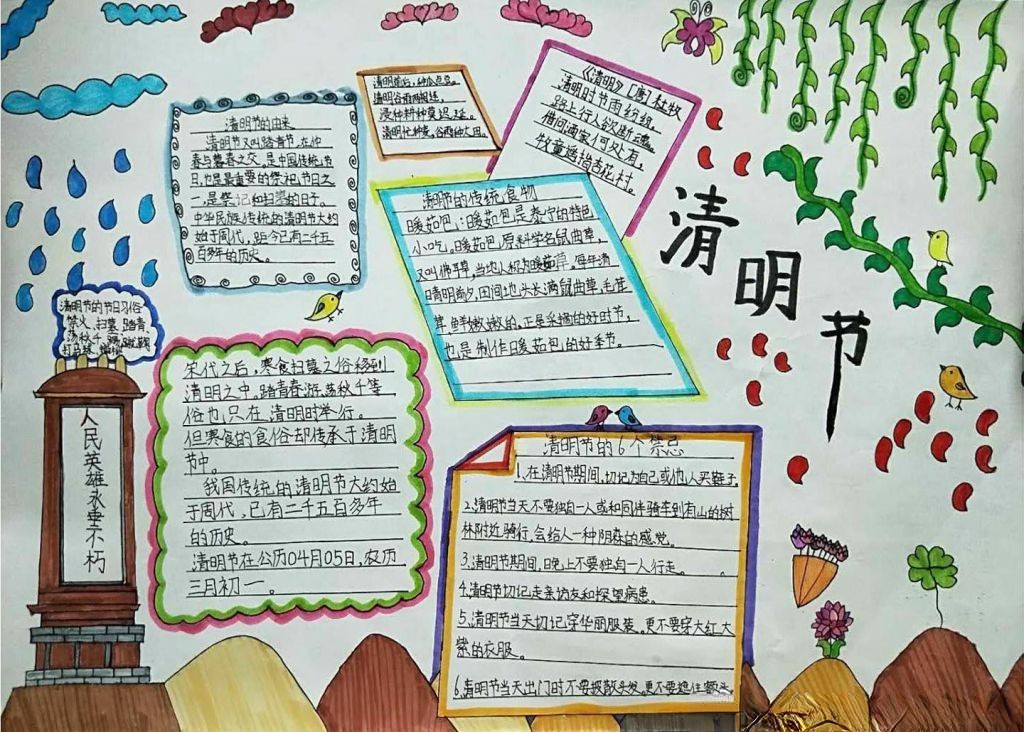 清明节
清明节的由来
清明节又叫踏青节,在仲
春与暮春之交,是中国传统节
日,也是最重要的祭祀节日之
一,是祭祀和扫墓的日子。
中华民族传统的清明节大约
始于周代,距今已有二千五
百多年的历史。
清明前后,种瓜点豆。
清明谷雨两相连,
浸种耕种莫迟延。
清明忙种麦,谷雨种大田。
《清明》 [唐] 杜牧
清明时节雨纷纷,
路上行人欲断魂。
借问酒家何处有,
牧童遥指杏花村。
清明节的传统食物
暖茹包:暖茹包是泰宁的特色
小吃,暖茹包原料学名鼠曲草,
又叫佛耳草,当地人称为暖茹草。每年清
明前夕,田间地头长满鼠曲草,毛茸
茸,鲜嫩嫩的,正是采摘的好时节,
也是制作暖茹包的好季节。
清明节的节日习俗
禁火、扫墓、踏青
荡秋千、蹴鞠
打马球、插柳
人民英雄永垂不朽
宋代之后,寒食扫墓之俗移到
清明之中。踏青春游、荡秋千等
俗也只在清明时举行。
但寒食的食俗却传承于清明
节中。
我国传统的清明节大约始
于周代,已有二千五百多年
的历史。
清明节在公历04月05日,农历
三月初一。
清明节的6个禁忌
1、在清明节期间,切记为自己或他人买鞋子
2.清明节当天不要独自一人或和同伴骑车到有山的树
林附近骑行,会给人一种阴森的感觉。
3.清明节期间,晚上不要独自一人行走。
4.清明节切记走亲访友和探望病患。
5.清明节当天切记穿华丽服装。更不要穿大红大
紫的衣服。
6.清明节当天出门时不要披散头发,更不要遮住额头。